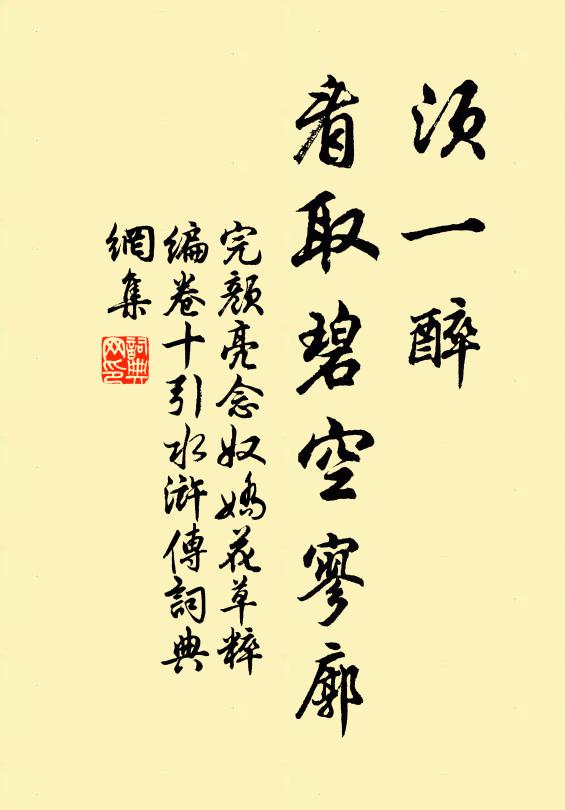 須一醉
看取碧空寥廓
完顏亮念奴嬌花草粹
編卷十引水滸傳詞典
網集
詞典
网印